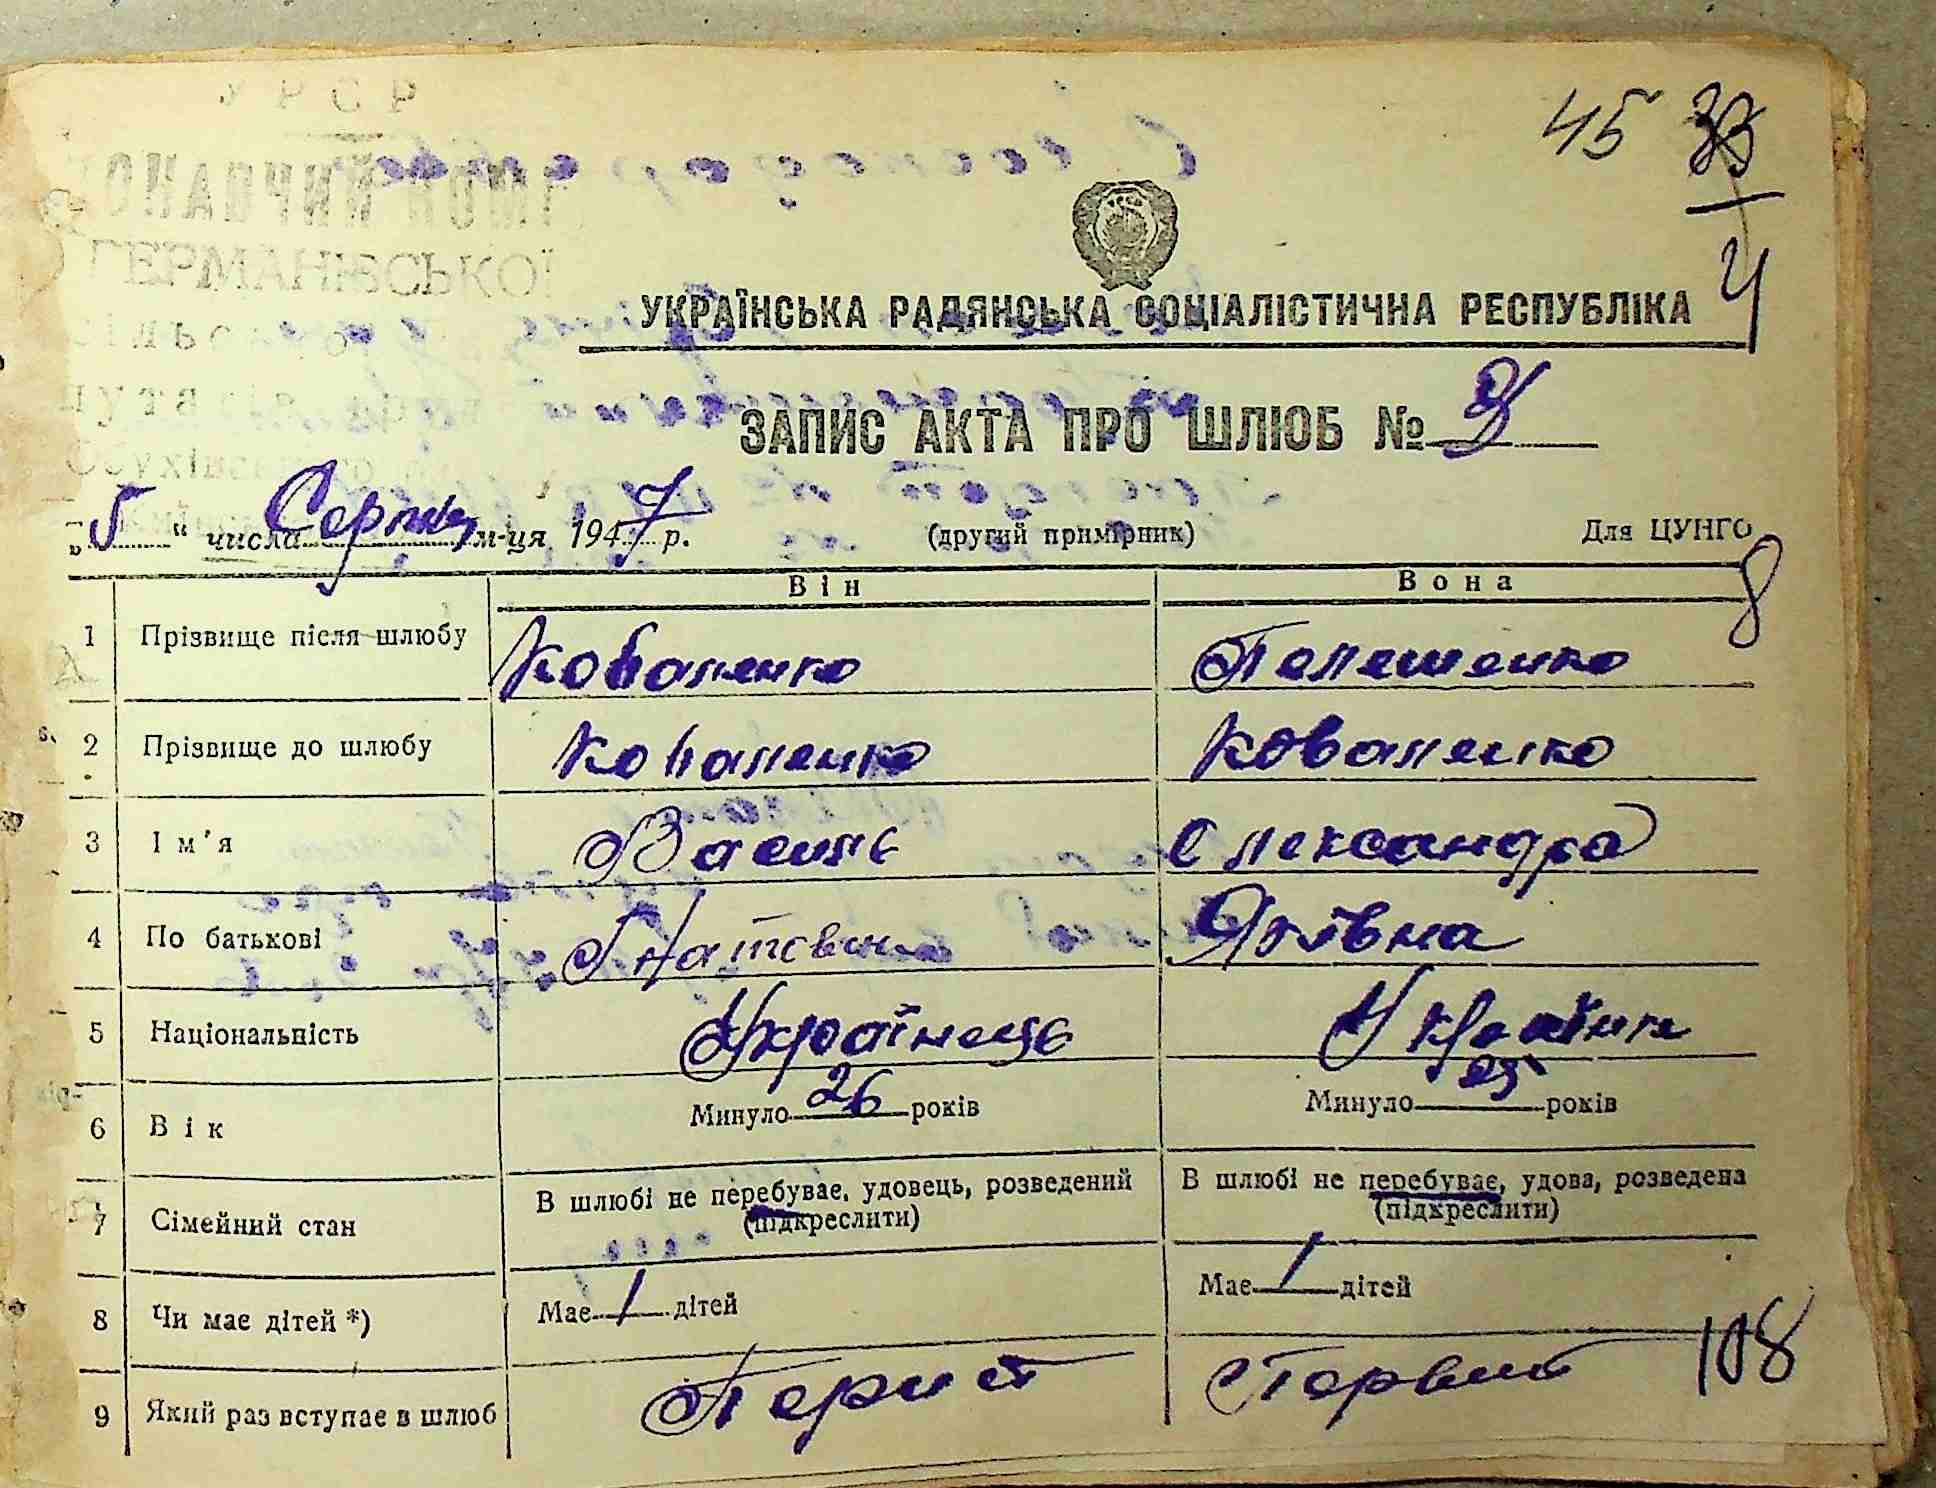 У Р С Р
ГЕРМАНІВСЬКОЇ
45 33
4
УКРАЇНСЬКА РАДЯНСЬКА СОЦІАЛІСТИЧНА РЕСПУБЛІКА
ЗАПИС АКТА ПРО ШЛЮБ №
„5“ числа Серпня м-ця 1947 р. (другий примірник) Для ЦУНГО
8
Він Вона
1 Прізвище після шлюбу Коваленко Телешенко
2 Прізвище до шлюбу Коваленко Коваленко
3 Ім'я Василь Олександра
4 По батькові Гнатович Яківна
5 Національність Українець Українка
6 Вік Минуло 26 років Минуло 25 років
7 Сімейний стан В шлюбі не перебуває, удовець, розведений В шлюбі не перебуває, удова, розведена
(підкреслити) (підкреслити)
8 Чи має дітей *) Має 1 дітей Має 1 дітей
108
9 Який раз вступає в шлюб Перший Первий